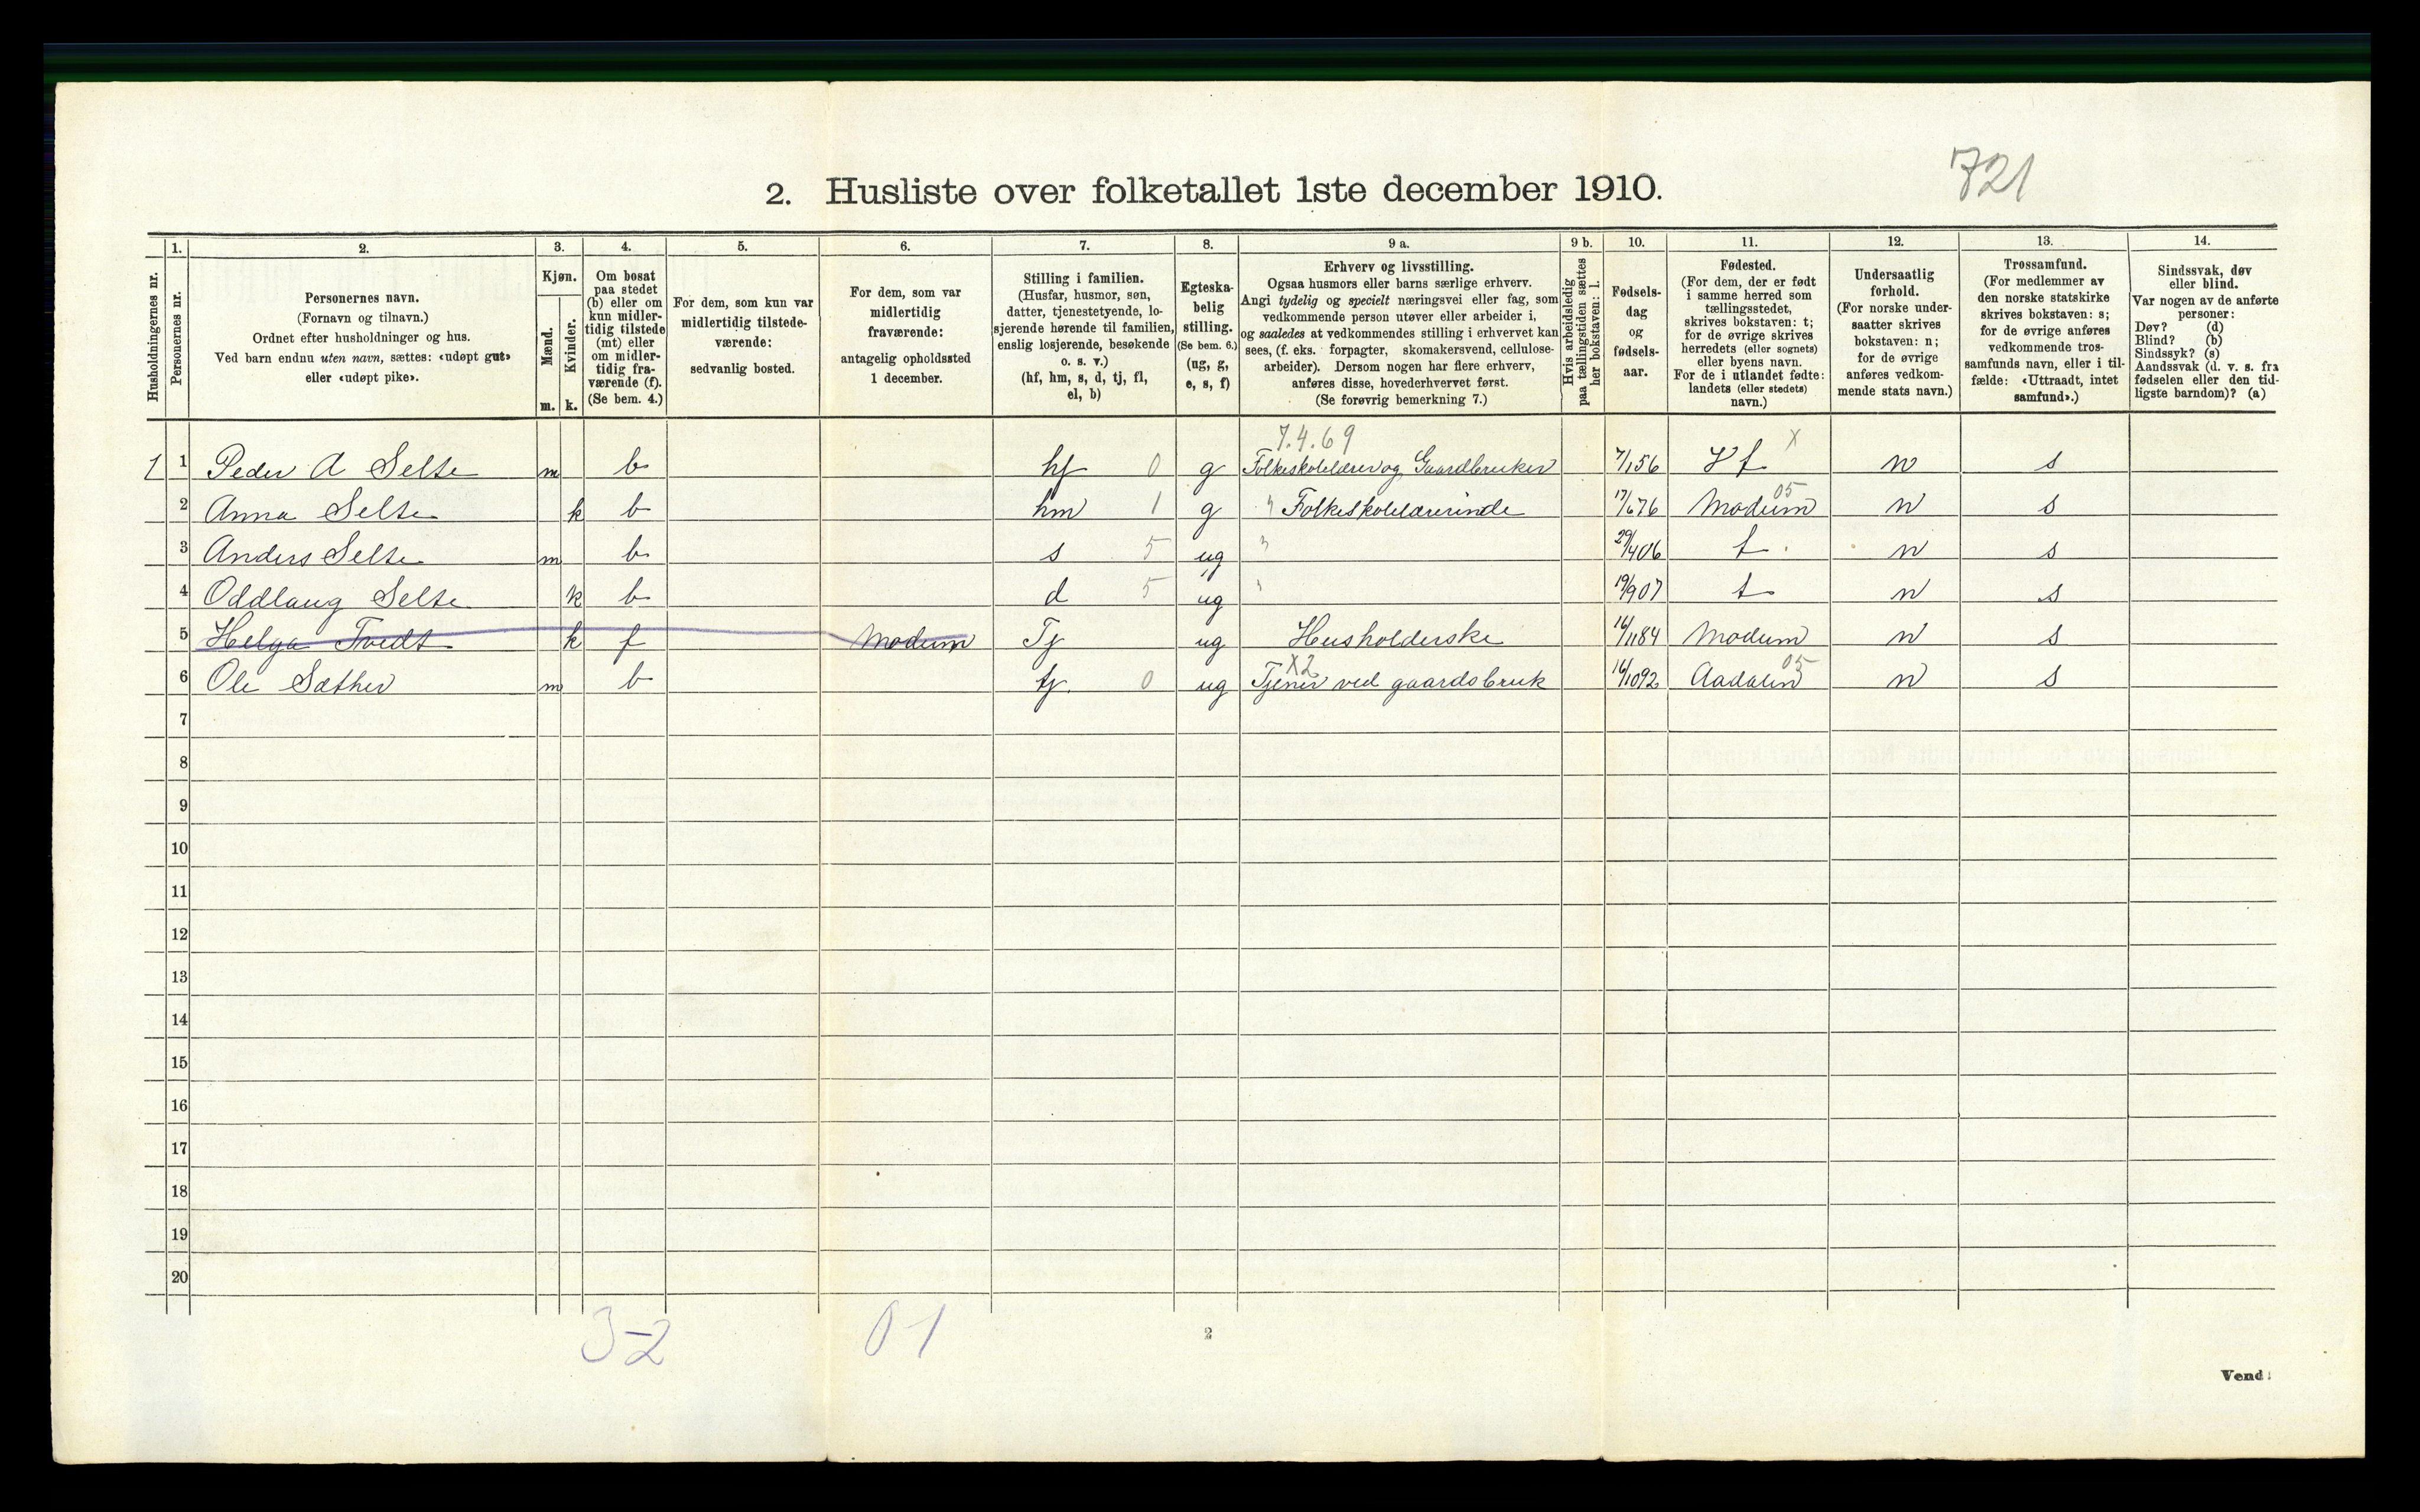 721
2. Husliste over folketallet 1ste december 1910.
Husholdningernes nr.
1.
Personernes nr.
2.
Personernes navn.
(Fornavn og tilnavn.)
Ordnet efter husholdninger og hus.
Ved barn endnu uten navn, sættes: «udøpt gut»
eller «udøpt pike».
3.
Kjøn.
Mænd.
Kvinder.
m. k.
4.
Om bosat
paa stedet
(b) eller om
kun midler-
tidig tilstede
(mt) eller
om midler-
tidig fra-
værende (f).
(Se bem. 4.)
5.
For dem, som kun var
midlertidig tilstede-
værende:
sedvanlig bosted.
6.
For dem, som var
midlertidig
fraværende:
antagelig opholdssted
1 december.
7.
Stilling i familien.
(Husfar, husmor, søn,
datter, tjenestetyende, lo-
sjerende hørende til familien,
enslig losjerende, besøkende
o. s. v.)
(hf, hm, s, d, tj, fl,
el, b)
8.
Egteska-
belig
stilling.
(Se bem. 6.)
(ug, g,
e, s, f)
9 a.
Erhverv og livsstilling.
Ogsaa husmors eller barns særlige erhverv.
Angi tydelig og specielt næringsvei eller fag, som
vedkommende person utøver eller arbeider i,
og saaledes at vedkommendes stilling i erhvervet kan
sees, (f. eks. forpagter, skomakersvend, cellulose-
arbeider). Dersom nogen har flere erhverv,
anføres disse, hovederhvervet først.
(Se forøvrig bemerkning 7.)
9 b.
Hvis arbeidsledig
paa tællingstiden sættes
her bokstaven: l.
10.
Fødsels-
dag
og
fødsels-
aar.
11.
Fødested.
(For dem, der er født
i samme herred som
tællingsstedet,
skrives bokstaven: t;
for de øvrige skrives
herredets (eller sognets)
eller byens navn.
For de i utlandet fødte:
landets (eller stedets)
navn.)
12.
Undersaatlig
forhold.
(For norske under-
saatter skrives
bokstaven: n;
for de øvrige
anføres vedkom-
mende stats navn.)
13.
Trossamfund.
(For medlemmer av
den norske statskirke
skrives bokstaven: s;
for de øvrige anføres
vedkommende tros-
samfunds navn, eller i til-
fælde: «Uttraadt, intet
samfund».)
14.
Sindssvak, døv
eller blind.
Var nogen av de anførte
personer:
Døv? (d)
Blind? (b)
Sindssyk? (s)
Aandssvak (d. v. s. fra
fødselen eller den tid-
ligste barndom)? (a)
7.4.69 x
1 1 Peder A Selte m b hf 0 g Folkeskolelærer og Gaardbruker 7/1 56 n s
05
2 Anna Selte k b hm 1 g " Folkeskolelærerinde 17/6 76 Modum n s
3 Anders Selte m b s 5 ug " 29/4 06 t n s
4 Oddlaug Selte k b d 5 ug " 19/9 07 t n s
5 Helga Tvedt k f Modum Tj ug Husholderske 16/11 84 Modum n s
x2 05
6 Ole Sæther m b tj. 0 ug Tjener ved gaardsbruk 16/10 92 Aadalen n s
7
8
9
10
11
12
13
14
15
16
17
18
19
20
3-2 01
2
Vend!